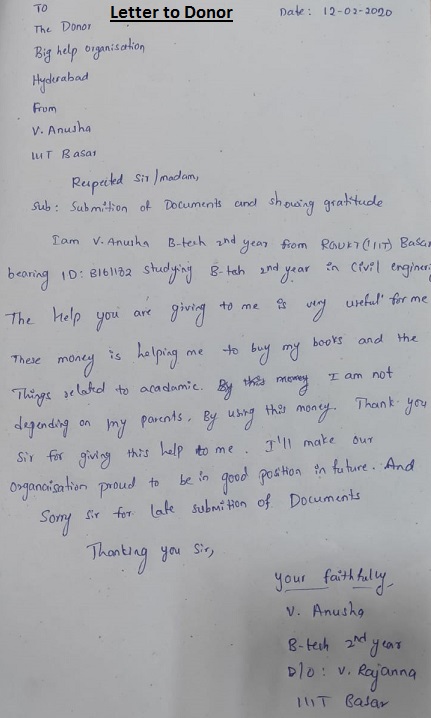 Letter to Donor
TO
Date: 12-02-2020
The Donor
Big help organisation
Hyderabad
From
V. Anusha
IIIT Basar
Respected Sir/madam,
Sub: Submition of Documents and showing gratitude
I am V. Anusha B-tech 2nd year from RGUKT(IIIT) Basar
bearing ID: B161182 studying B-teh 2nd year in Civil enginering
The help you are giving to me is very useful for me
These money is helping me to buy my books and the
Things related to acadamic. By this money I am not
depending on my parents. By using this money. Thank you
Sir for giving this help to me. I'll make our
organaisation proud to be in good position in future. And
Sorry sir for late submition of Documents
Thanking you Sir,
your faithfully,
V. Anusha
B-tech 2nd year
D/o: V. Rajanna
IIIT Basar